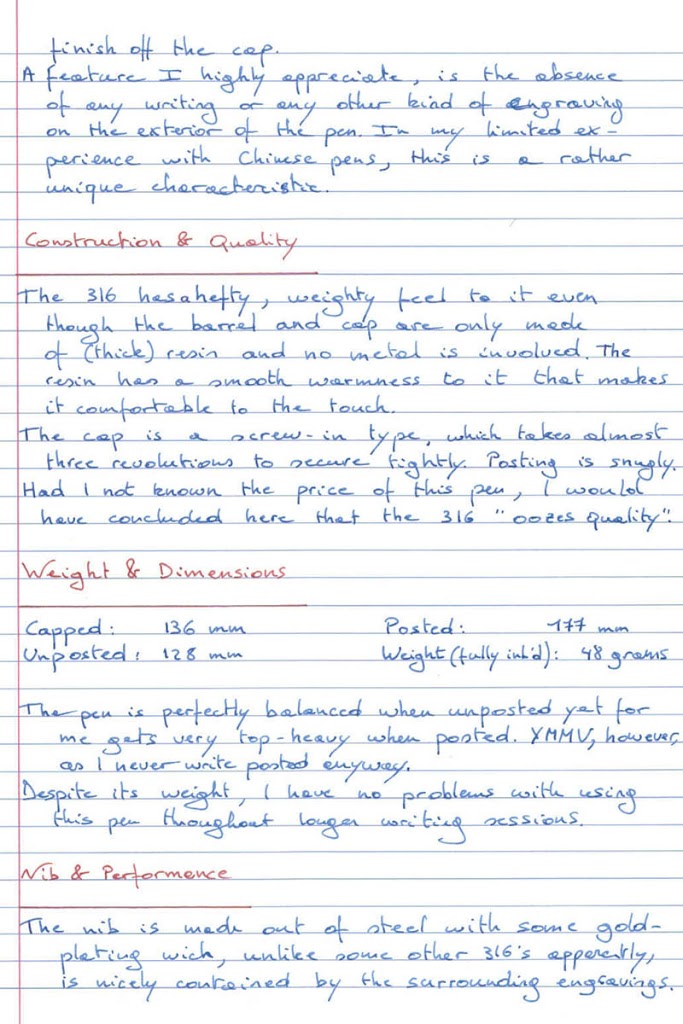 finish off the cap.
A feature I highly appreciate, is the absence
of any writing or any other kind of engraving
on the exterior of the pen. In my limited ex-
perience with Chinese pens, this is a rather
unique characteristic.
Construction & Quality
The 316 has a hefty, weighty feel to it even
though the barrel and cap are only made
of (thick) resin and no metal is involved. The
resin has a smooth warmness to it that makes
it comfortable to the touch.
The cap is a screw-in type, which takes almost
three revolutions to secure tightly. Posting is snugly.
Had I not known the price of this pen, I would
have concluded here that the 316 "oozes quality".
Weight & Dimensions
Capped: 136 mm Posted: 177 mm
Unposted: 128 mm Weight (fully ink'd): 48 grams
The pen is perfectly balanced when unposted yet for
me gets very top-heavy when posted. YMMV, however,
as I never write posted anyway.
Despite its weight, I have no problems with using
this pen throughout longer writing sessions.
Nib & Performance
The nib is made out of steel with some gold-
plating wich, unlike some other 316's apparently,
is nicely contained by the surrounding engravings.